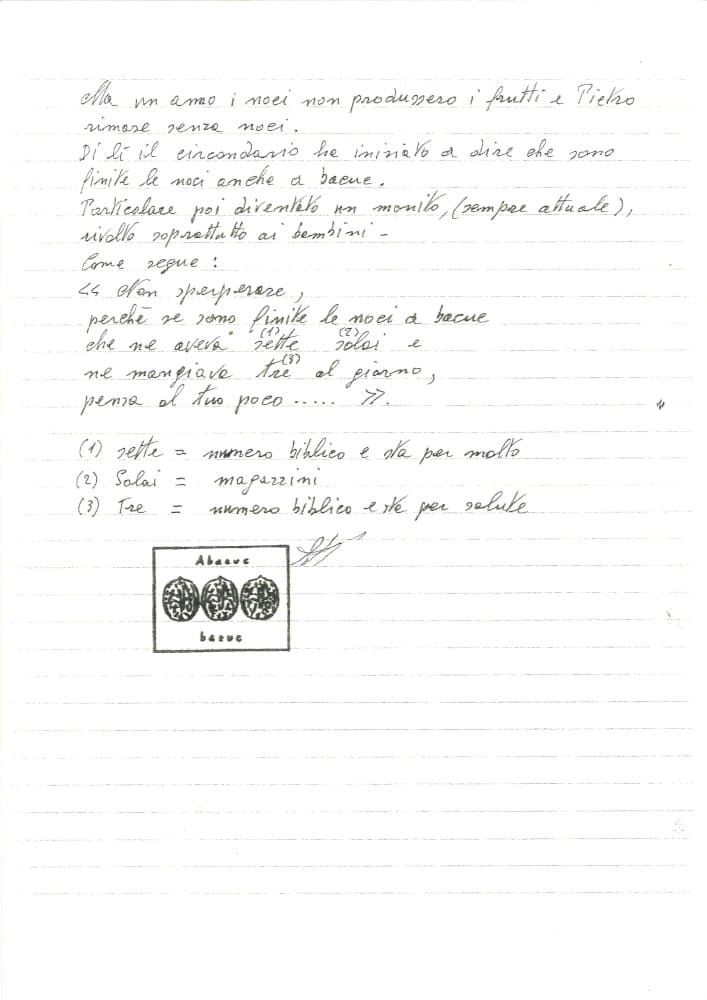 Ma un anno i noci non produssero i frutti e Pietro
rimase senza noci.
Di lì il circondario ha iniziato a dire che sono
finite le noci anche a bacue.
Particolare poi diventato un monito, (sempre attuale),
rivolto soprattutto ai bambini -
Come segue :
<< Non sperperare,
perchè se sono finite le noci a bacue
che ne aveva sette (1) solai (2) e
ne mangiava tre (3) al giorno,
pensa al tuo poco ..... >>.
(1) sette = numero biblico e sta per molto
(2) Solai = magazzini
(3) Tre = numero biblico e sta per salute
Abacuc
bacuc